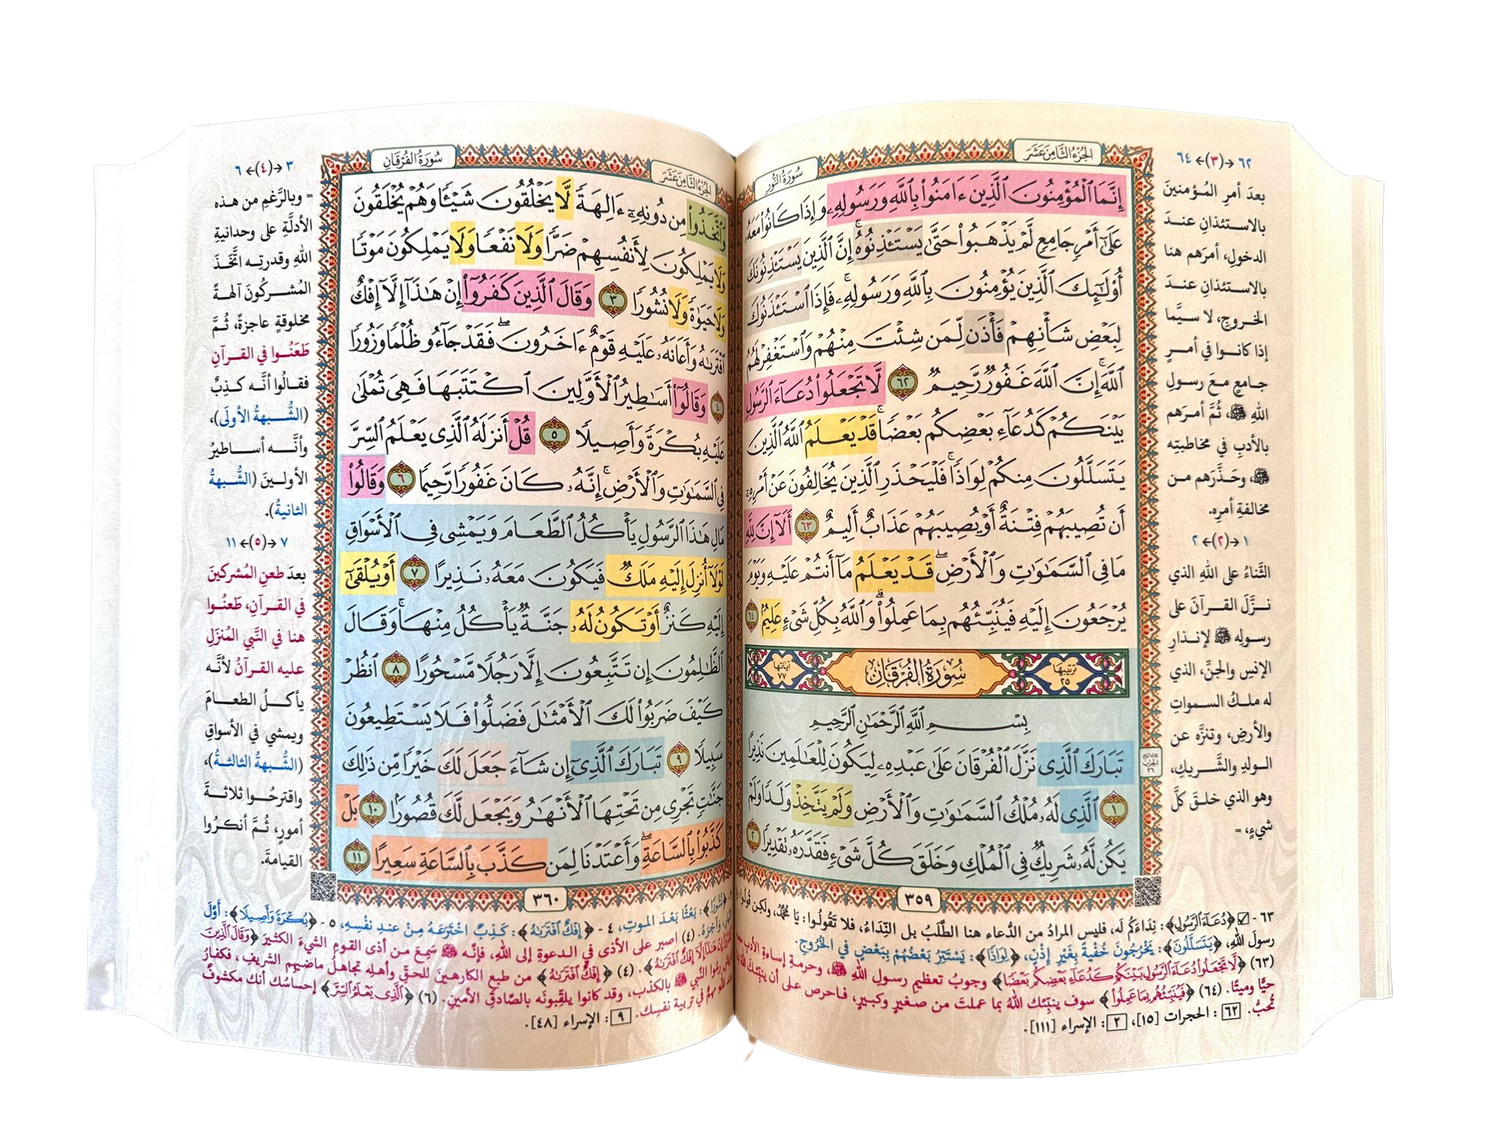 الجزء الثامن عشر
سورة النور
إِنَّمَا ٱلْمُؤْمِنُونَ ٱلَّذِينَ ءَامَنُوا۟ بِٱللَّهِ وَرَسُولِهِۦ وَإِذَا كَانُوا۟ مَعَهُۥ
عَلَىٰٓ أَمْرٍ جَامِعٍ لَّمْ يَذْهَبُوا۟ حَتَّىٰ يَسْتَـْٔذِنُوهُ ۚ إِنَّ ٱلَّذِينَ يَسْتَـْٔذِنُونَكَ
أُو۟لَـٰٓئِكَ ٱلَّذِينَ يُؤْمِنُونَ بِٱللَّهِ وَرَسُولِهِۦ ۚ فَإِذَا ٱسْتَـْٔذَنُوكَ
لِبَعْضِ شَأْنِهِمْ فَأْذَن لِّمَن شِئْتَ مِنْهُمْ وَٱسْتَغْفِرْ لَهُمُ
ٱللَّهَ ۚ إِنَّ ٱللَّهَ غَفُورٌ رَّحِيمٌ ٦٢ لَّا تَجْعَلُوا۟ دُعَآءَ ٱلرَّسُولِ
بَيْنَكُمْ كَدُعَآءِ بَعْضِكُم بَعْضًا ۚ قَدْ يَعْلَمُ ٱللَّهُ ٱلَّذِينَ
يَتَسَلَّلُونَ مِنكُمْ لِوَاذًا ۚ فَلْيَحْذَرِ ٱلَّذِينَ يُخَالِفُونَ عَنْ أَمْرِهِۦٓ
أَن تُصِيبَهُمْ فِتْنَةٌ أَوْ يُصِيبَهُمْ عَذَابٌ أَلِيمٌ ٦٣ أَلَآ إِنَّ لِلَّهِ
مَا فِى ٱلسَّمَـٰوَٰتِ وَٱلْأَرْضِ ۖ قَدْ يَعْلَمُ مَآ أَنتُمْ عَلَيْهِ وَيَوْمَ
يُرْجَعُونَ إِلَيْهِ فَيُنَبِّئُهُم بِمَا عَمِلُوا۟ ۗ وَٱللَّهُ بِكُلِّ شَىْءٍ عَلِيمٌ ٦٤
ترتيبها ٢٥
سورة الفرقان
آياتها ٧٧
بِسْمِ ٱللَّهِ ٱلرَّحْمَـٰنِ ٱلرَّحِيمِ
تَبَارَكَ ٱلَّذِى نَزَّلَ ٱلْفُرْقَانَ عَلَىٰ عَبْدِهِۦ لِيَكُونَ لِلْعَـٰلَمِينَ نَذِيرًا
١ ٱلَّذِى لَهُۥ مُلْكُ ٱلسَّمَـٰوَٰتِ وَٱلْأَرْضِ وَلَمْ يَتَّخِذْ وَلَدًا وَلَمْ
يَكُن لَّهُۥ شَرِيكٌ فِى ٱلْمُلْكِ وَخَلَقَ كُلَّ شَىْءٍ فَقَدَّرَهُۥ تَقْدِيرًا ٢
٣٥٩
٦٢ ← (٣) ← ٦٤
بعدَ أمرِ المُؤمنينَ
بالاستئذانِ عندَ
الدخولِ، أمرَهم هنا
بالاستئذانِ عندَ
الخروجِ، لا سيَّما
إذا كانوا في أمرٍ
جامعٍ معَ رسولِ
اللهِ ﷺ، ثُمَّ أمرَهم
بالأدبِ في مخاطبتِه
ﷺ، وحَذَّرَهم من
مخالفةِ أمرِه.
١ ← (٢) ← ٢
الثَّناءُ على اللهِ الذي
نزَّلَ القرآنَ على
رسولِه ﷺ لإنذارِ
الإنسِ والجنِّ، الذي
له ملكُ السمواتِ
والأرضِ، وتنزَّه عن
الولدِ والشَّريكِ،
وهو الذي خلقَ كلَّ
شيءٍ، =
٦٣ - ﴿دُعَاءَ الرَّسُولِ﴾: نِدَاءَكُم لَه، فليس المرادُ من الدُّعاء هنا الطَّلَبُ بل النِّدَاءُ، فلا تَقُولُوا: يَا مُحَمَّدُ، ولكِن قُولُوا
رسولَ اللهِ، ﴿يَتَسَلَّلُونَ﴾: يَخْرُجُونَ خُفْيَةً بِغَيْرِ إِذْنٍ، ﴿لِوَاذًا﴾: يَسْتَتِرُ بَعْضُهُمْ بِبَعْضٍ فِي الخُرُوجِ.
(٦٣) ﴿لَا تَجْعَلُوا دُعَاءَ الرَّسُولِ بَيْنَكُمْ كَدُعَاءِ بَعْضِكُم بَعْضًا﴾ وجوبُ تعظيمِ رسولِ اللهِ ﷺ، وحرمةِ إساءةِ الأدبِ معه
حيًّا وميتًا. (٦٤) ﴿فَيُنَبِّئُهُم بِمَا عَمِلُوا﴾ سوف ينبِّئك اللهُ بما عملتَ من صغيرٍ وكبيرٍ، فاحرص على أن ينبِّئك بما
تُحبُّ. ٦٢: الحجرات [١٥]، ٢: الإسراء [١١١].
سورة الفرقان
الجزء الثامن عشر
وَٱتَّخَذُوا۟ مِن دُونِهِۦٓ ءَالِهَةً لَّا يَخْلُقُونَ شَيْـًٔا وَهُمْ يُخْلَقُونَ
وَلَا يَمْلِكُونَ لِأَنفُسِهِمْ ضَرًّا وَلَا نَفْعًا وَلَا يَمْلِكُونَ مَوْتًا
وَلَا حَيَوٰةً وَلَا نُشُورًا ٣ وَقَالَ ٱلَّذِينَ كَفَرُوٓا۟ إِنْ هَـٰذَآ إِلَّآ إِفْكٌ
ٱفْتَرَىٰهُ وَأَعَانَهُۥ عَلَيْهِ قَوْمٌ ءَاخَرُونَ ۖ فَقَدْ جَآءُو ظُلْمًا وَزُورًا
٤ وَقَالُوٓا۟ أَسَـٰطِيرُ ٱلْأَوَّلِينَ ٱكْتَتَبَهَا فَهِىَ تُمْلَىٰ
عَلَيْهِ بُكْرَةً وَأَصِيلًا ٥ قُلْ أَنزَلَهُ ٱلَّذِى يَعْلَمُ ٱلسِّرَّ
فِى ٱلسَّمَـٰوَٰتِ وَٱلْأَرْضِ ۚ إِنَّهُۥ كَانَ غَفُورًا رَّحِيمًا ٦ وَقَالُوا۟
مَالِ هَـٰذَا ٱلرَّسُولِ يَأْكُلُ ٱلطَّعَامَ وَيَمْشِى فِى ٱلْأَسْوَاقِ
لَوْلَآ أُنزِلَ إِلَيْهِ مَلَكٌ فَيَكُونَ مَعَهُۥ نَذِيرًا ٧ أَوْ يُلْقَىٰٓ
إِلَيْهِ كَنزٌ أَوْ تَكُونُ لَهُۥ جَنَّةٌ يَأْكُلُ مِنْهَا ۚ وَقَالَ
ٱلظَّـٰلِمُونَ إِن تَتَّبِعُونَ إِلَّا رَجُلًا مَّسْحُورًا ٨ ٱنظُرْ
كَيْفَ ضَرَبُوا۟ لَكَ ٱلْأَمْثَـٰلَ فَضَلُّوا۟ فَلَا يَسْتَطِيعُونَ
سَبِيلًا ٩ تَبَارَكَ ٱلَّذِىٓ إِن شَآءَ جَعَلَ لَكَ خَيْرًا مِّن ذَٰلِكَ
جَنَّـٰتٍ تَجْرِى مِن تَحْتِهَا ٱلْأَنْهَـٰرُ وَيَجْعَل لَّكَ قُصُورًۢا ١٠ بَلْ
كَذَّبُوا۟ بِٱلسَّاعَةِ ۖ وَأَعْتَدْنَا لِمَن كَذَّبَ بِٱلسَّاعَةِ سَعِيرًا ١١
٣٦٠
٣ ← (٤) ← ٦
= وبالرَّغمِ من هذه
الأدلَّةِ على وحدانيةِ
اللهِ وقدرتِه اتَّخَذَ
المُشركُونَ آلهةً
مخلوقةً عاجزةً، ثُمَّ
طَعَنُوا في القرآنِ
فقالُوا أنَّه كذِبٌ
(الشُّبهةُ الأولَى)،
وأنَّه أساطيرُ
الأولينَ (الشُّبهةُ
الثانيةُ).
٧ ← (٥) ← ١١
بعدَ طعنِ المُشركينَ
في القرآنِ، طَعنُوا
هنا في النَّبي المُنزَلِ
عليه القرآنُ لأنَّه
يأكلُ الطعامَ
ويمشي في الأسواقِ
(الشُّبهةُ الثالثةُ)،
واقترحُوا ثلاثةَ
أمورٍ، ثُمَّ أنكرُوا
القيامةَ.
﴿نُشُورًا﴾: بَعْثًا بَعْدَ الموتِ، ٤ - ﴿إِفْكٌ افْتَرَاهُ﴾: كَذِبٌ اخْتَرَعَهُ مِنْ عِندِ نفْسِهِ، ٥ - ﴿بُكْرَةً وَأَصِيلًا﴾: أَوَّلَ
وَآخِرَهُ. (٤) اصبر على الأذى في الدعوةِ إلى اللهِ، فإنَّه ﷺ سَمِعَ من أذى القومِ الشيءَ الكثيرَ ﴿وَقَالَ الَّذِينَ
﴿إِفْكٌ افْتَرَاهُ﴾. (٤) ﴿إِفْكٌ افْتَرَاهُ﴾ من طبعِ الكارهينَ للحقِّ وأهلِه تجاهلُ ماضيهم الشريفِ، فكفارُ
رموُا النَّبيَّ ﷺ بالكذبِ، وقد كانوا يلقِّبونَه بالصَّادقِ الأمينِ. (٦) ﴿الَّذِي يَعْلَمُ السِّرَّ﴾ إحساسُك أنك مكشوفٌ
مهمٌ في تربية نفسِك. ٩: الإسراء [٤٨].